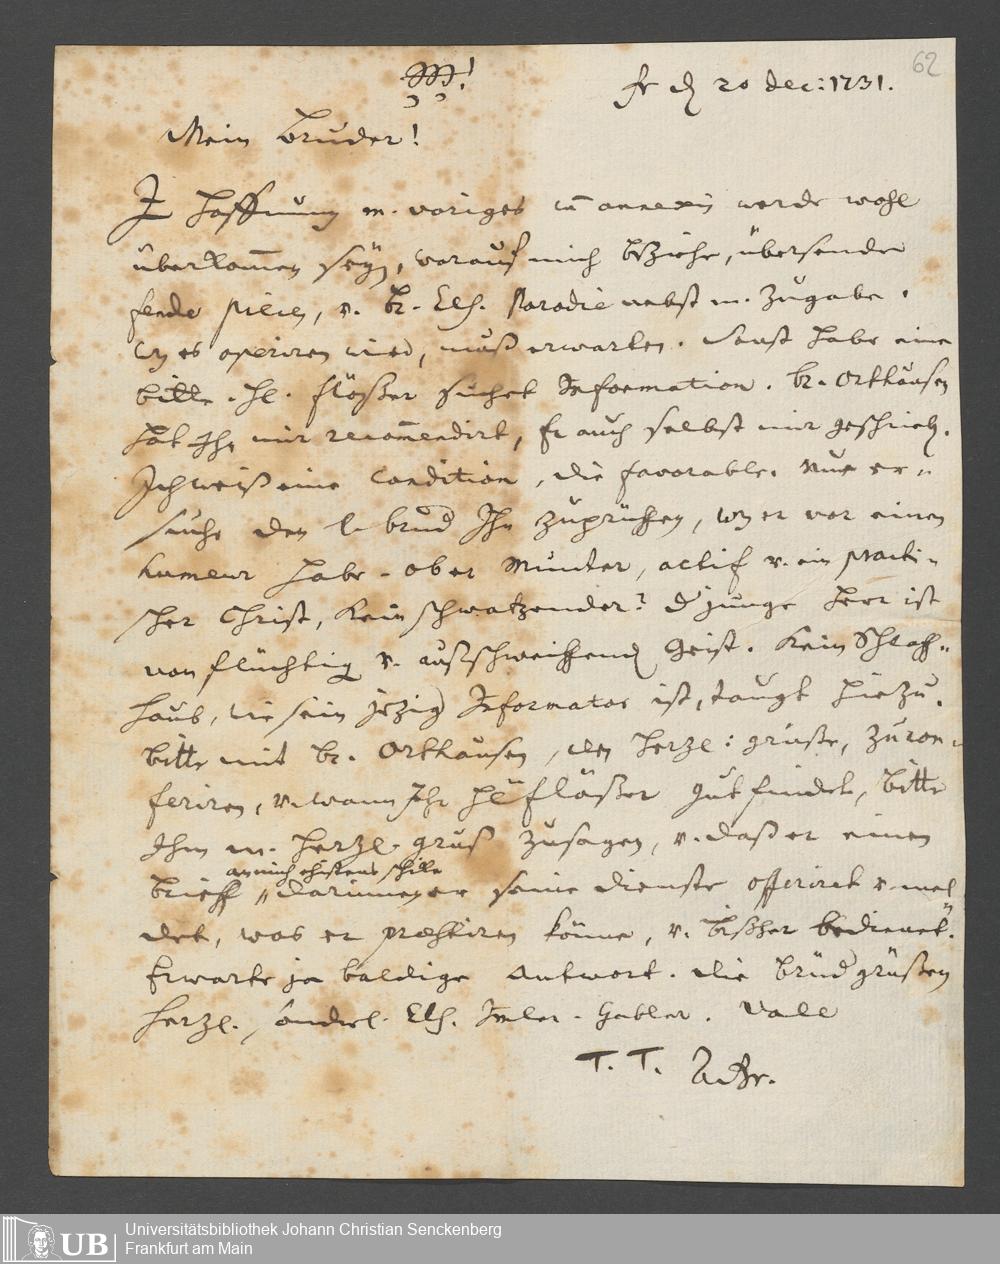 62
fr d 20 dec: 1731.
Mein Bruder!
In Hoffnung m. voriges cum annexis werde wohl
überkommen seyn, worauf mich beziehe, übersende
piecen, u. Br. Els. Paradie nebst m. Zugabe.
es operiren wird, muß erwarten. Sonst habe eine
bitte. H. Flößer suchet Information. br. Orthausen
hat Ihn mir recommendirt, Er auch selbst mir geschrieb.
Ich weiß eine Condition, die favorable. Nur er-
suche den l. brud Ihn zuprüffen, was er vor einen
humeur habe. ob er Munter, actif u. ein practi-
scher Christ, Kein schwatzender? d junge Herr ist
von flüchtig u. außschweiffend Geist. Kein Schlaff-
haub, wie sein jezig Informator ist, taugt hiezu.
bitte mit br. Orthausen, den herzl: grüße, zu con-
feriren, u. wann Ihr H. Flößer gut findet, bitte
Ihm m. herzl. gruß zusagen, u. daß er einen
brieff an mich ehistens schicke darinnen er seine dienste offeriret u. mel-
det, was er præstiren könne, u. bißher bedienet.
Erwarte ja baldige Antwort. die brüd grüßen
herzl. sonderl. Els. Gabler. Vale
T. T.
UB
Universitätsbibliothek Johann Christian Senckenberg
Frankfurt am Main